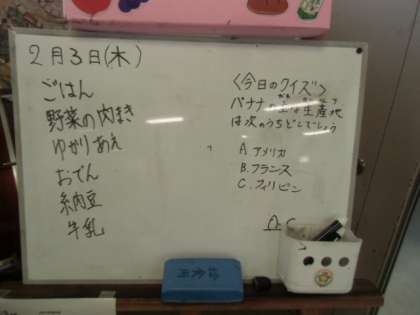 2月3日(木)
ごはん
野菜の肉まき
ゆかりあえ
おでん
納豆
牛乳
<今日のクイズ>
バナナの主な生産地
は次のうちどこでしょう
A.アメリカ
B.フランス
C.フィリピン
A.C